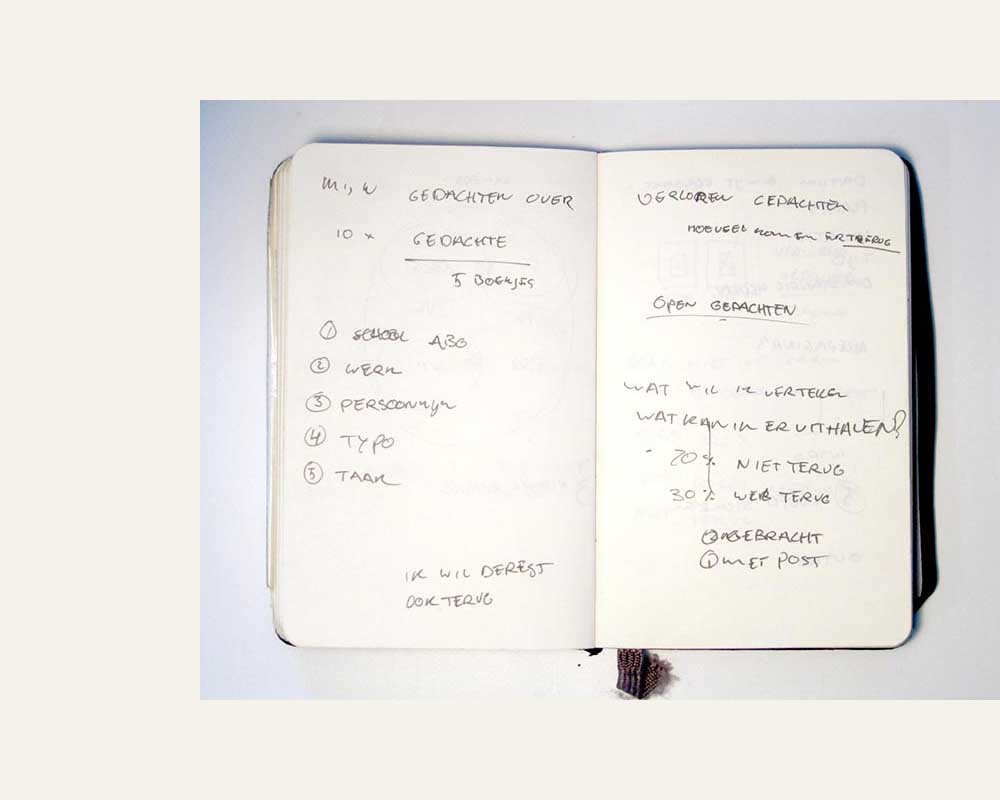 M, W GEDACHTEN OVER
10 x GEDACHTE
5 BOEKJES
① SCHOOL ABO
② WERK
③ PERSOONLIJK
④ TYPO
⑤ TAAK
IK WIL DE REST
OOK TERUG
VERLOREN GEDACHTEN
HOEVEEL KOMEN ER TERUG
OPEN GEDACHTEN
WAT WIL IK VERTELLEN
WAT KAN IK ER UITHALEN?
- 70% NIET TERUG
30% WEL TERUG
② GEBRACHT
① MET POST